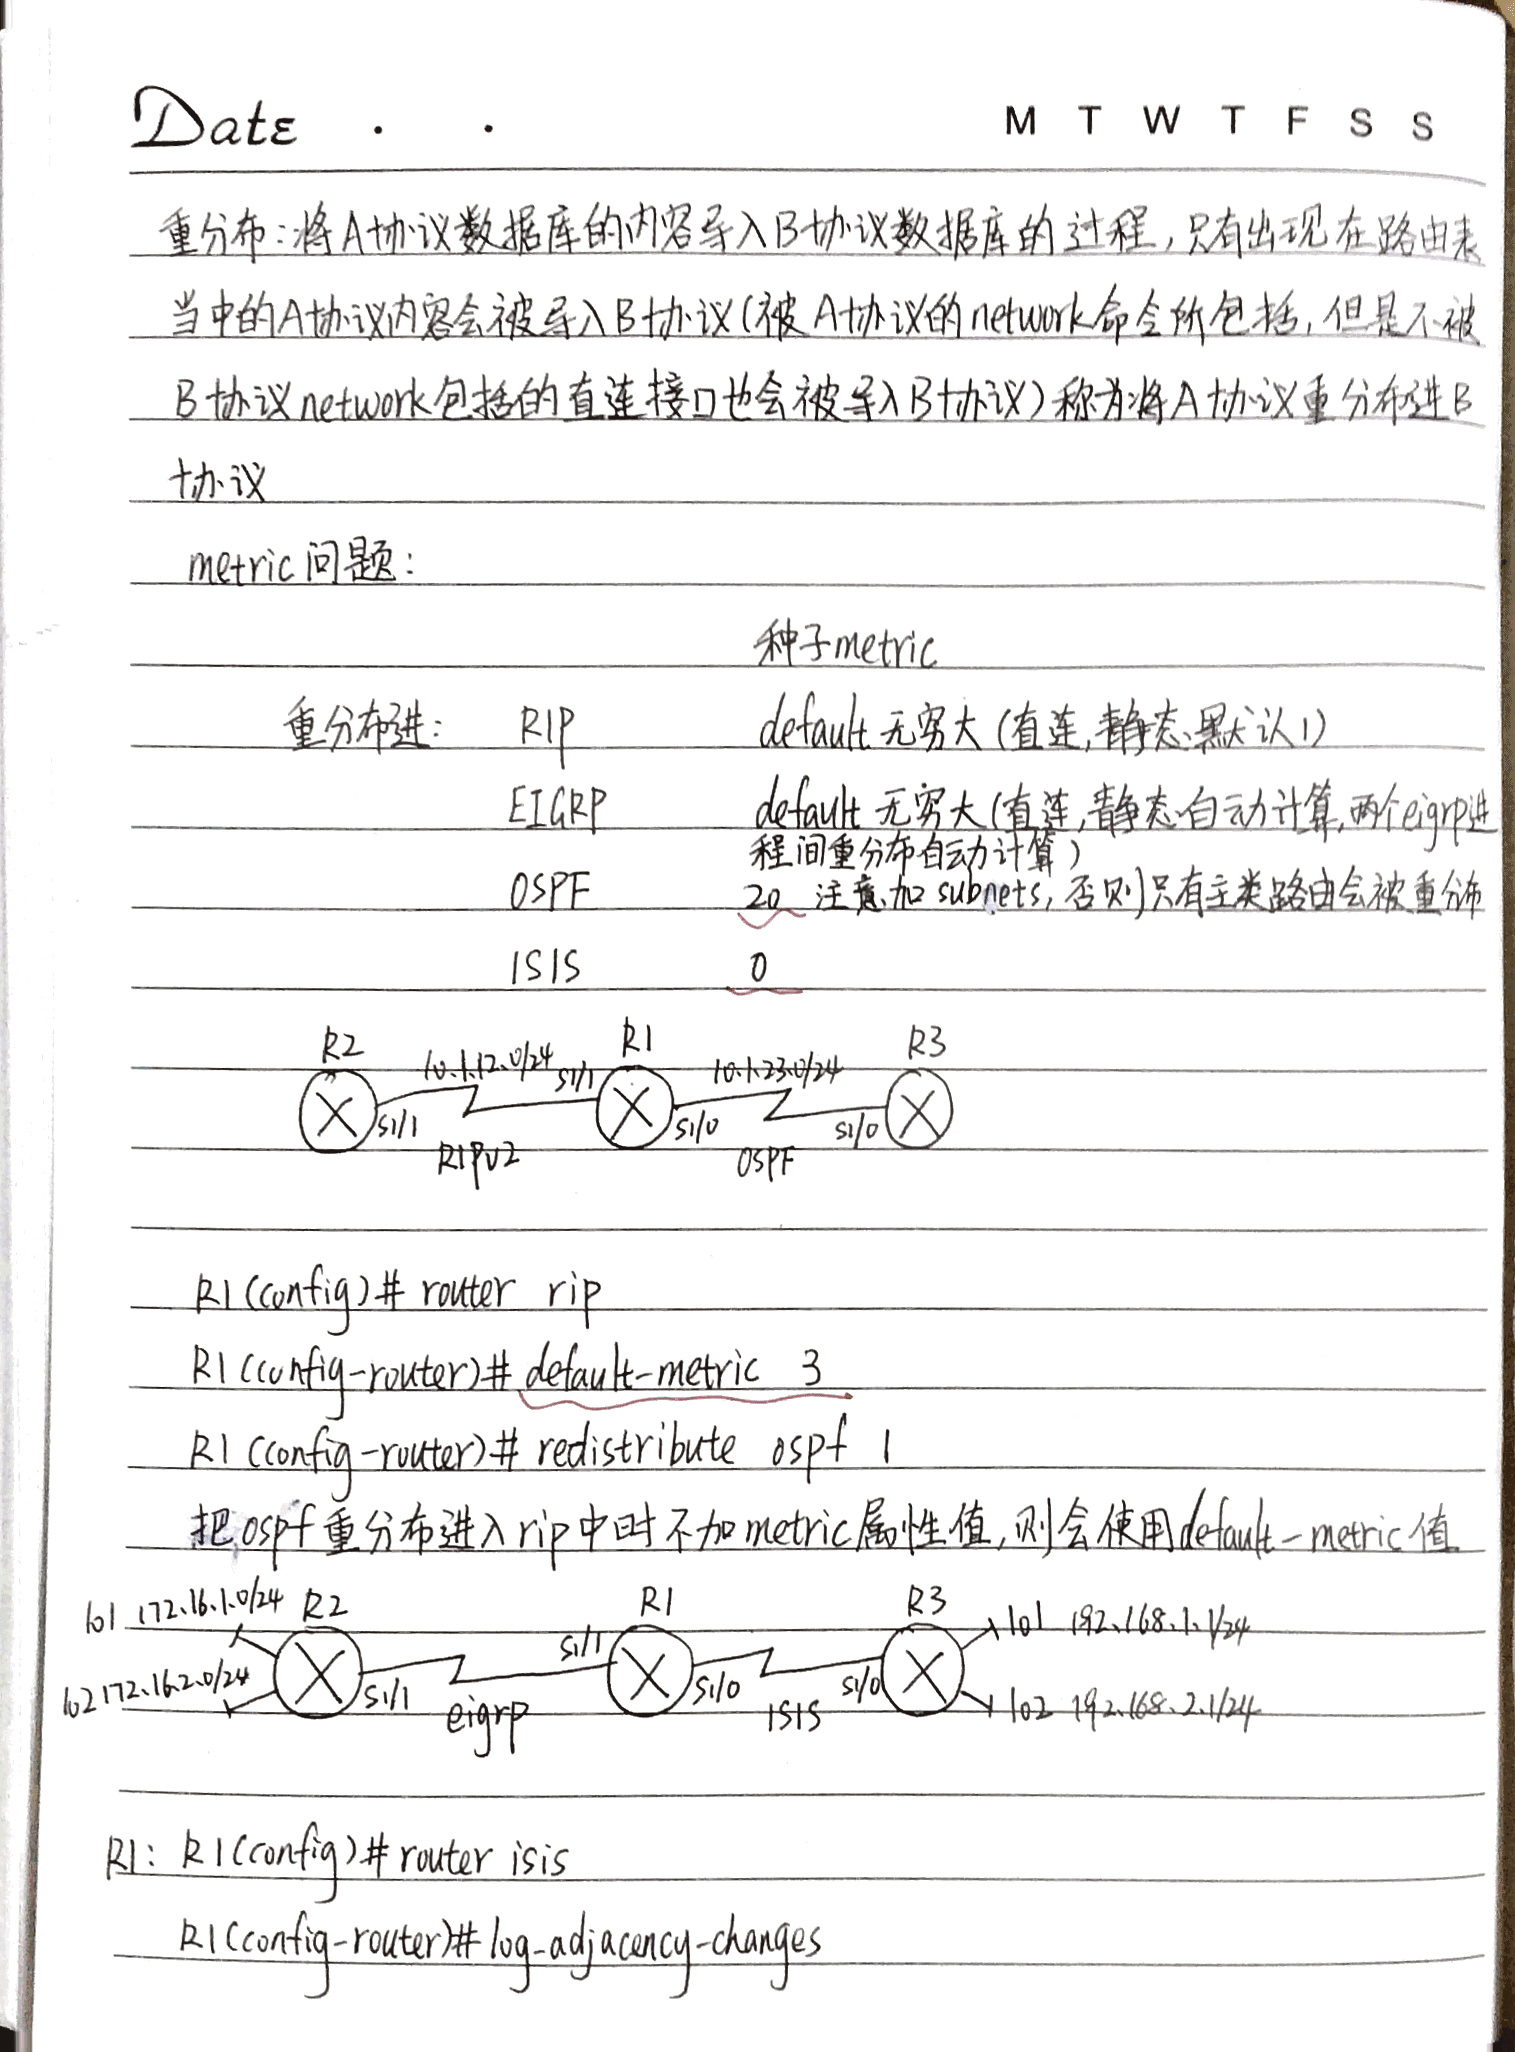 Date . . M T W T F S S
重分布:将A协议数据库的内容导入B协议数据库的过程,只有出现在路由表
当中的A协议内容会被导入B协议(被A协议的network命令所包括,但是不被
B协议network包括的直连接口也会被导入B协议)称为将A协议重分布进B
协议
metric问题:
种子metric
重分布进: RIP default 无穷大(直连,静态默认1)
EIGRP default 无穷大(直连,静态自动计算,两个eigrp进
程间重分布自动计算)
OSPF 20 注意加subnets,否则只有主类路由会被重分布
ISIS 0
R2 R1 R3
10.1.12.0/24 S1/1 10.1.23.0/24
S1/1 S1/0 S1/0
RIPv2 OSPF
R1(config)# router rip
R1(config-router)# default-metric 3
R1(config-router)# redistribute ospf 1
把ospf重分布进入rip中时不加metric属性值,则会使用default-metric值
lo1 172.16.1.0/24 R2 R1 R3 lo1 192.168.1.1/24
S1/1
lo2 172.16.2.0/24 S1/1 S1/0 S1/0 lo2 192.168.2.1/24
eigrp ISIS
R1: R1(config)# router isis
R1(config-router)# log-adjacency-changes